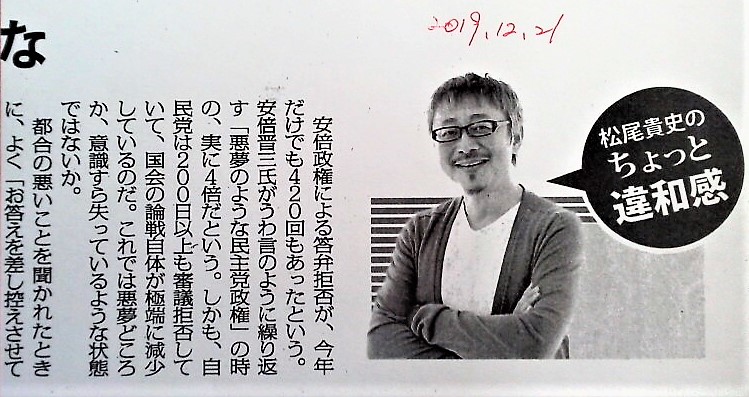 2019.12.21
な
松尾貴史の
ちょっと
違和感
安倍政権による答弁拒否が、今年
だけでも420回もあったという。
安倍晋三氏がうわ言のように繰り返
す「悪夢のような民主党政権」の時
の、実に4倍だという。しかも、自
民党は200日以上も審議拒否して
いて、国会の論戦自体が極端に減少
しているのだ。これでは悪夢どころ
か、意識すら失っているような状態
ではないか。
都合の悪いことを聞かれたとき
に、よく「お答えを差し控えさせて